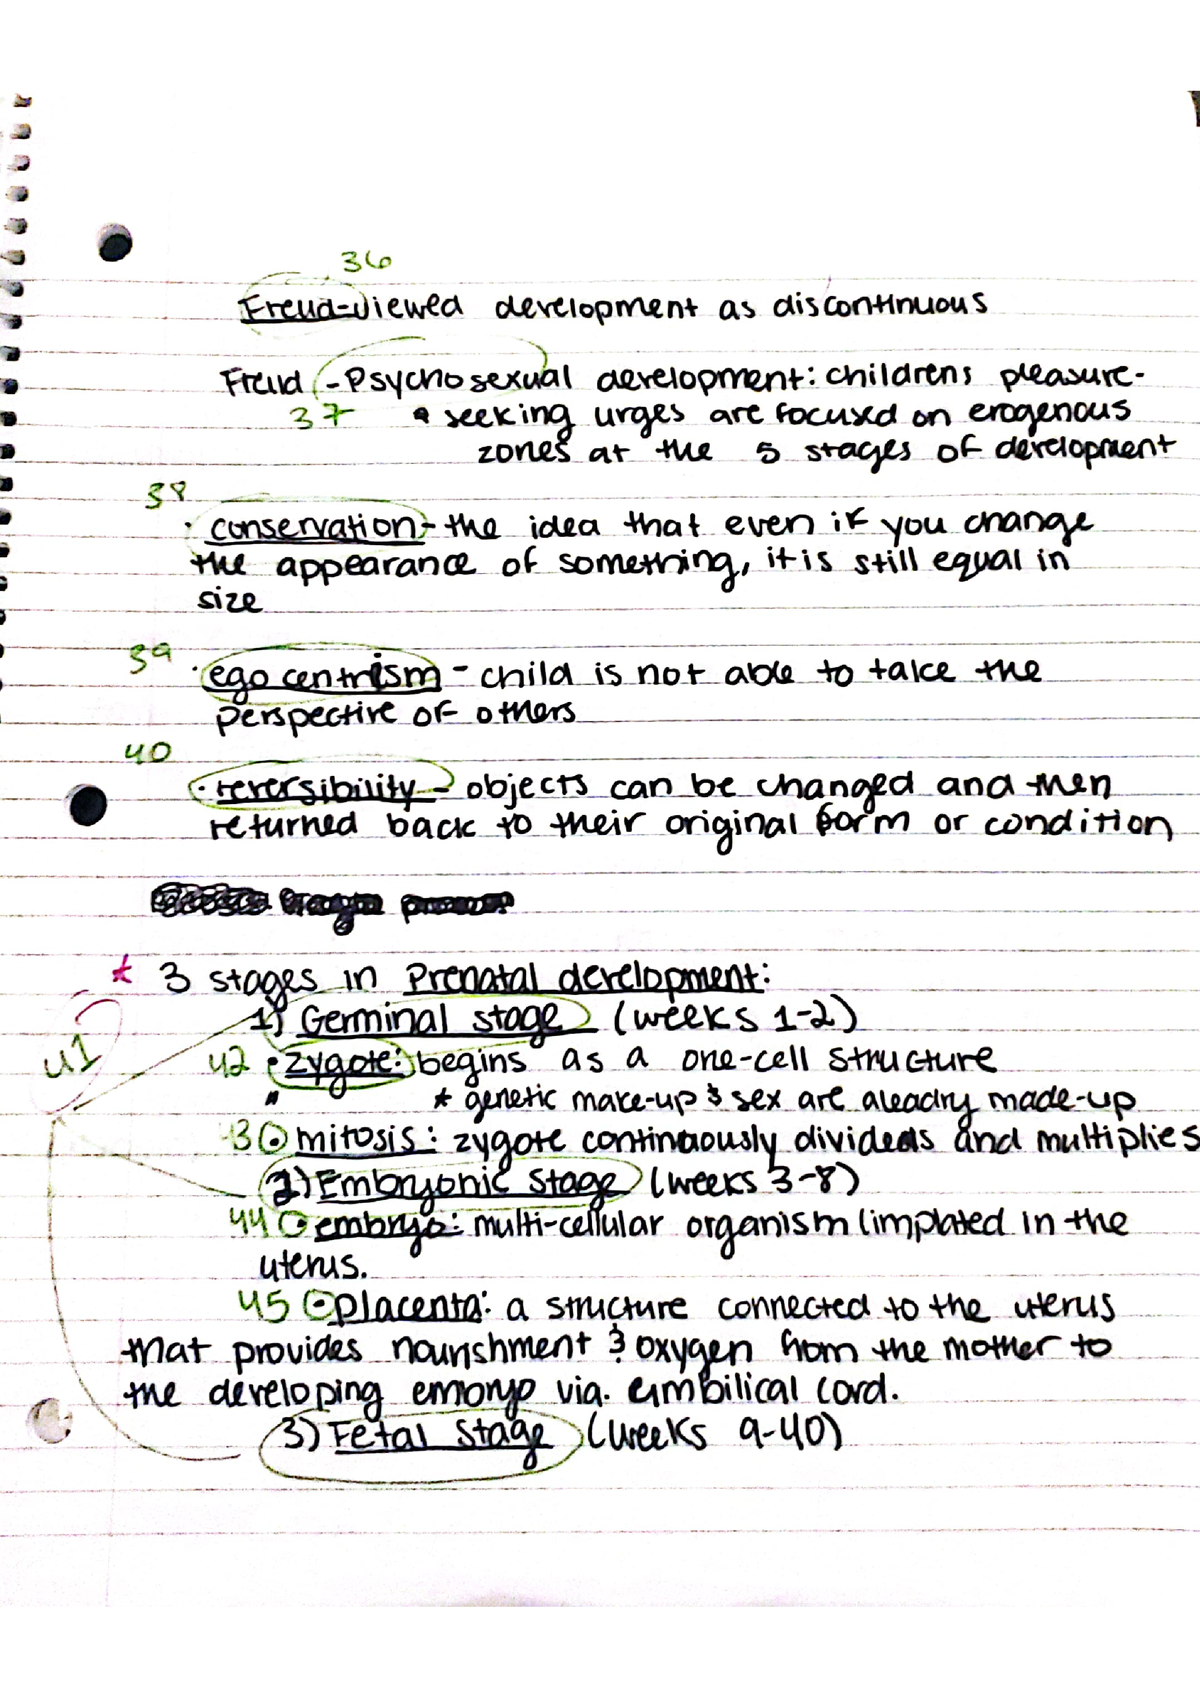 36
Freud-viewed development as discontinuous
Freud - Psychosexual development: childrens pleasure-
37 seeking urges are focused on erogenous
zones at the 5 stages of development
38
· conservation - the idea that even if you change
the appearance of something, it is still equal in
size
39 · egocentrism - child is not able to take the
perspective of others
40
· reversibility - objects can be changed and then
returned back to their original form or condition
* 3 stages in Prenatal development:
1) Germinal stage (weeks 1-2)
41
42 · zygote: begins as a one-cell structure
* genetic make-up & sex are aleadry made-up
43 · mitosis: zygote continuously divideds and multiplies
2) Embryonic Stage (weeks 3-8)
44 · embryo: multi-cellular organism (implated in the
uterus.
45 · placenta: a structure connected to the uterus
that provides nourishment & oxygen from the mother to
the developing embryo via. umbilical cord.
3) Fetal Stage (weeks 9-40)